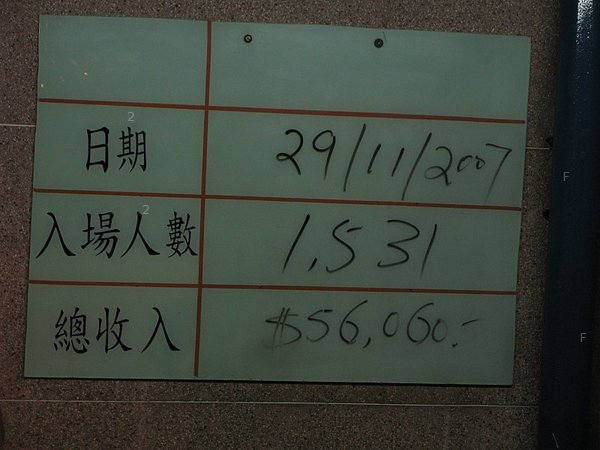 日期 29/11/2007
入場人數 1,531
總收入 $56,060.-